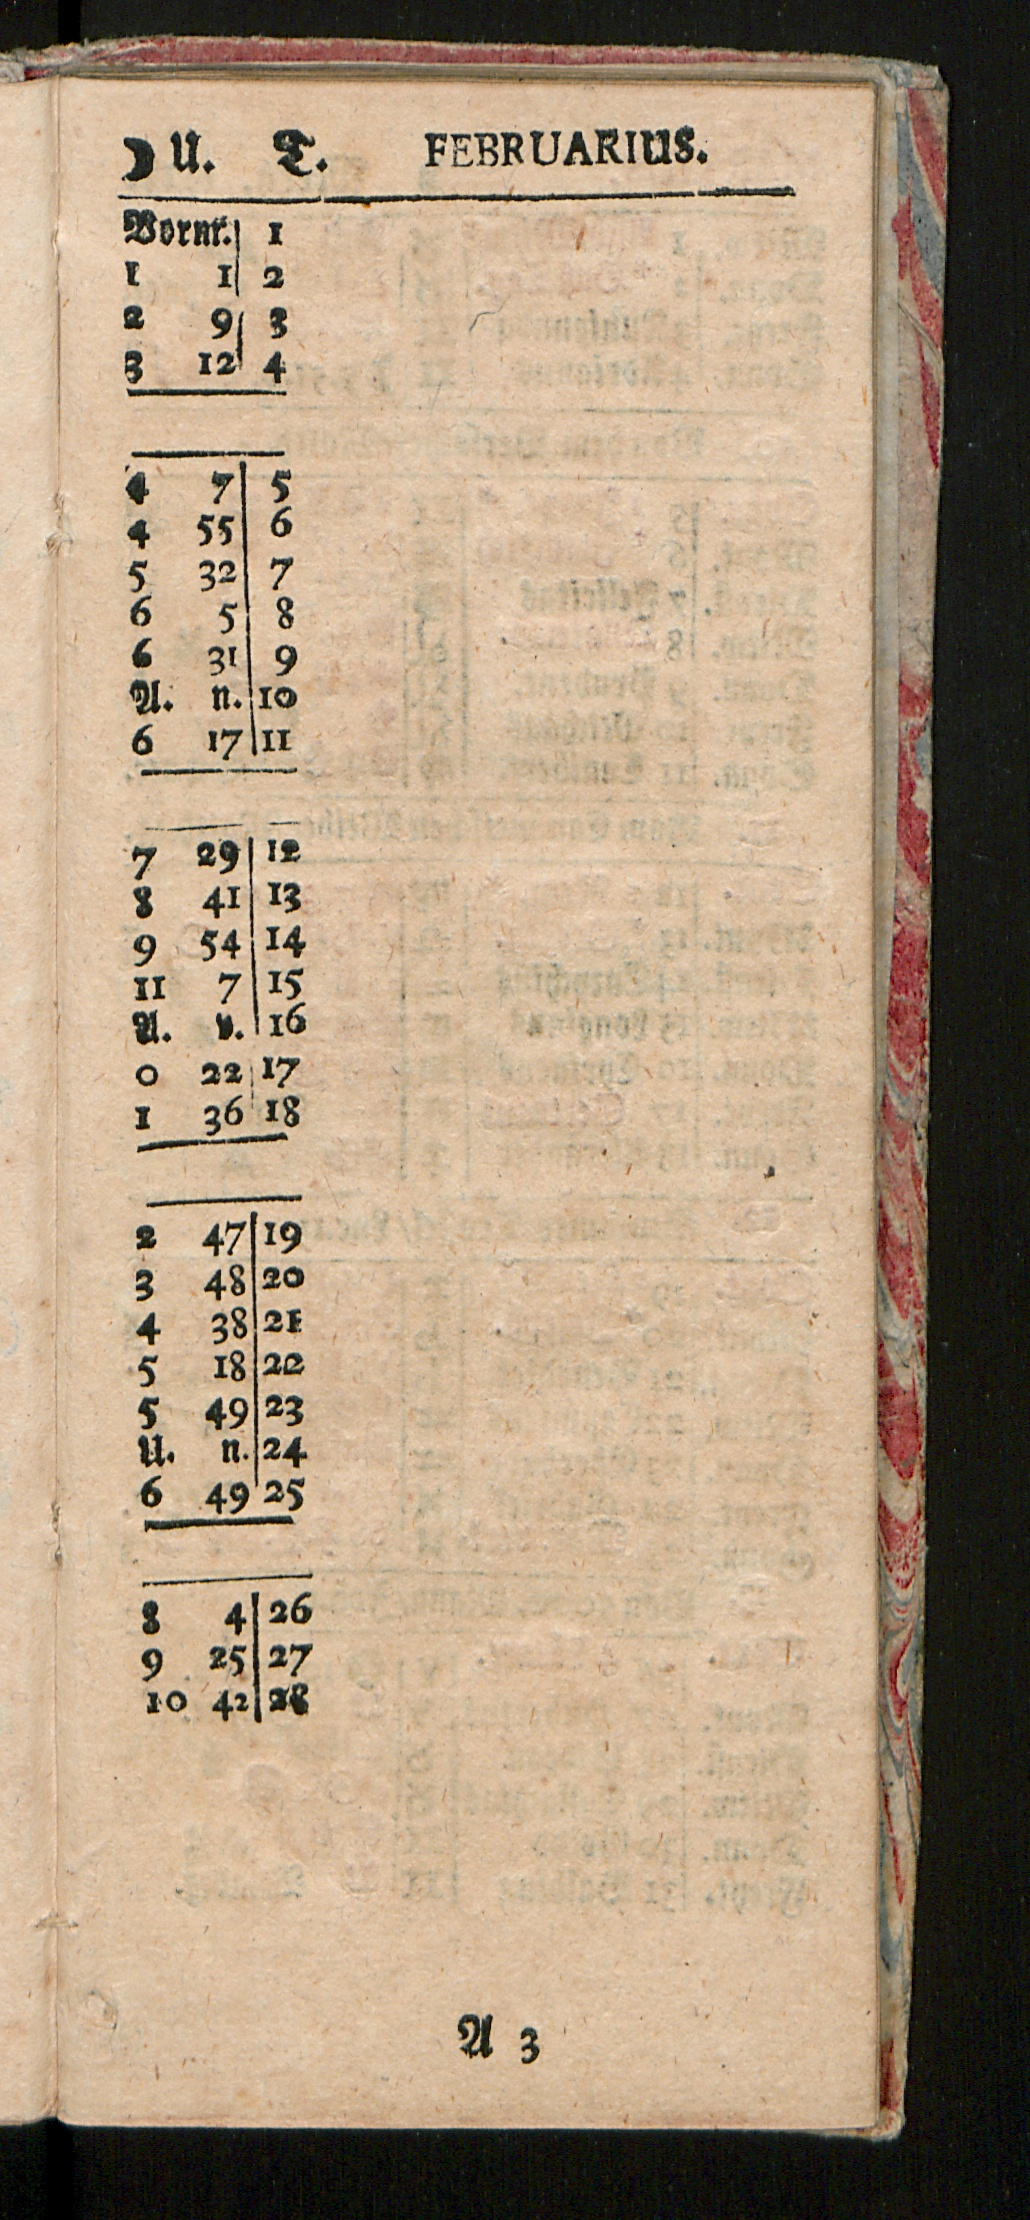 ☽ U. T. FEBRUARIUS.
Vorm. 1
1 1 2
2 9 3
3 12 4
4 7 5
4 55 6
5 32 7
6 5 8
6 31 9
A. n. 10
6 17 11
7 29 12
8 41 13
9 54 14
11 7 15
A. v. 16
0 22 17
1 36 18
2 47 19
3 48 20
4 38 21
5 18 22
5 49 23
U. n. 24
6 49 25
8 4 26
9 25 27
10 42 28
A 3